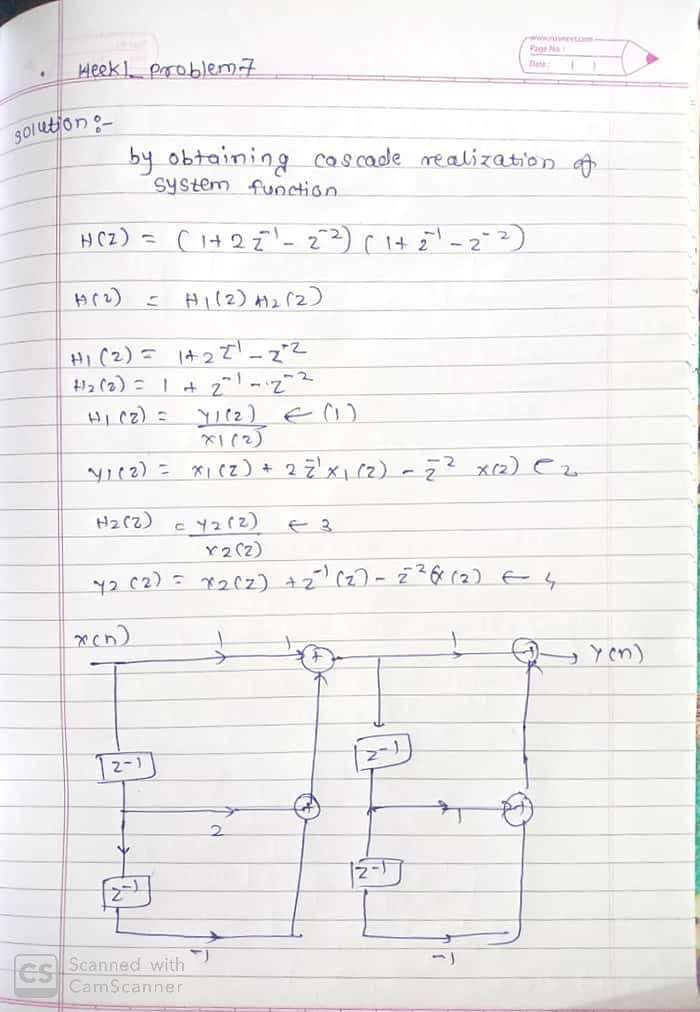 Page No.:
Date:
Week 1 problem 7
solution :-
by obtaining cascade realization of
system function
H(z) = (1+2z⁻¹ - z⁻²) (1+z⁻¹ - z⁻²)
H(z) = H1(z) H2(z)
H1(z) = 1+2z⁻¹ - z⁻²
H2(z) = 1 + z⁻¹ - z⁻²
H1(z) = Y1(z) ← (1)
X1(z)
Y1(z) = X1(z) + 2z⁻¹ X1(z) - z⁻² X(z) ← 2
H2(z) = Y2(z) ← 3
X2(z)
Y2(z) = X2(z) + z⁻¹(z) - z⁻² X(z) ← 4
x(n) 1 1 + 1 + Y(n)
z-1 z-1
2 + 1 +
z-1 z-1
-1 -1
CS Scanned with
CamScanner